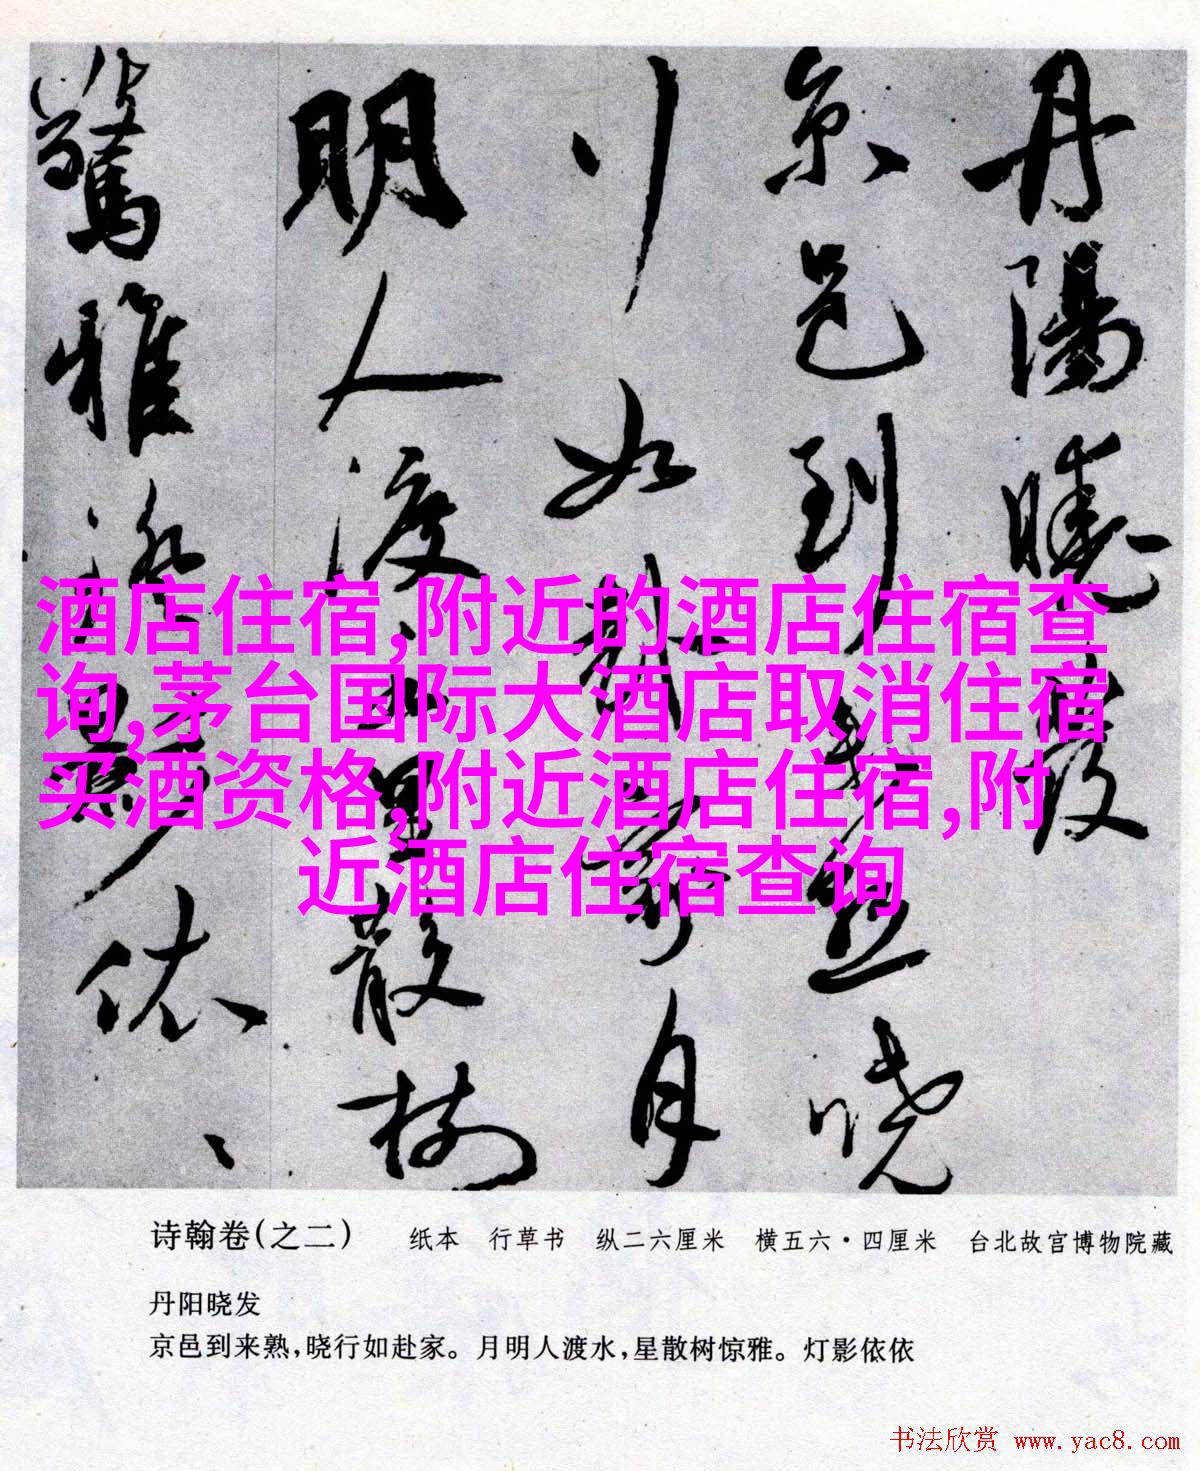 丹陽曉發
京邑到來熟曉
行如赴家月
明人渡水星散樹
驚雅
依
酒店住宿,附近的酒店住宿查
询,茅台国际大酒店取消住宿
买酒资格,附近酒店住宿,附
近酒店住宿查询
诗翰卷(之二) 纸本 行草书 纵二六厘米 横五六·四厘米 台北故宫博物院藏
丹阳晓发
京邑到来熟,晓行如赴家。月明人渡水,星散树惊雅。灯影依依
书法欣赏 www.yac8.com